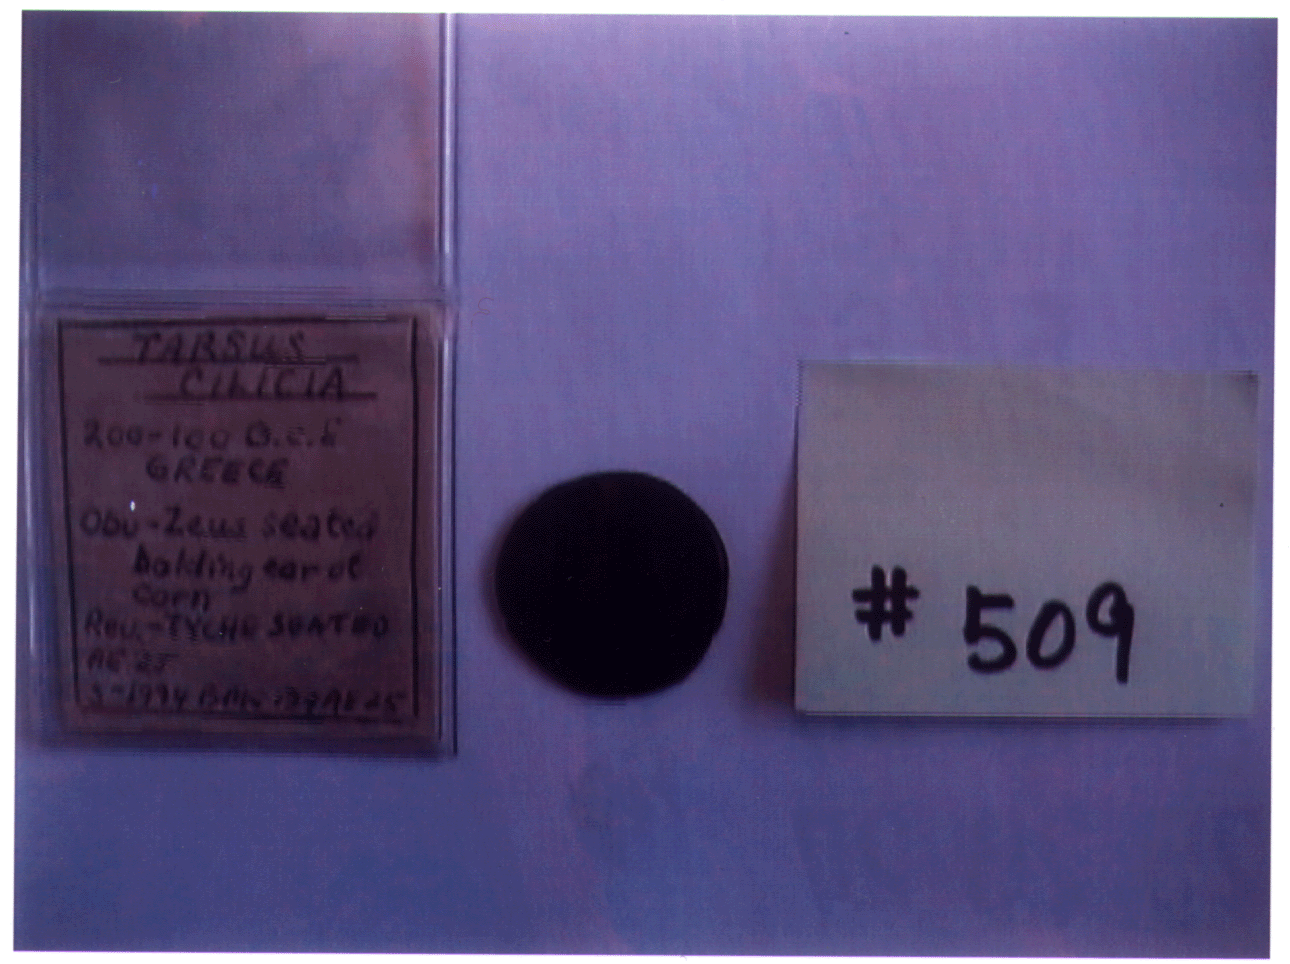 TARSUS
CILICIA
200-100 B.C.E
GREECE
Obv-Zeus seated
holding ear of
corn
Rev.-TYCHE SEATED
AE 25
# 509